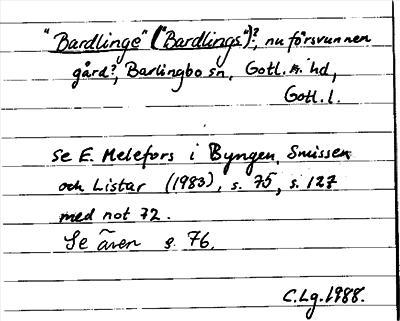 "Bardlinge" ("Bardlings")?, nu försvunnen
gård?, Barlingbo sn, Gotl. n. hd,
Gotl. l.
Se E. Melefors i Byngen, Snissen
och Listar (1983), s. 75, s. 127
med not 72.
Se även s. 76.
C.Lg. 1988.